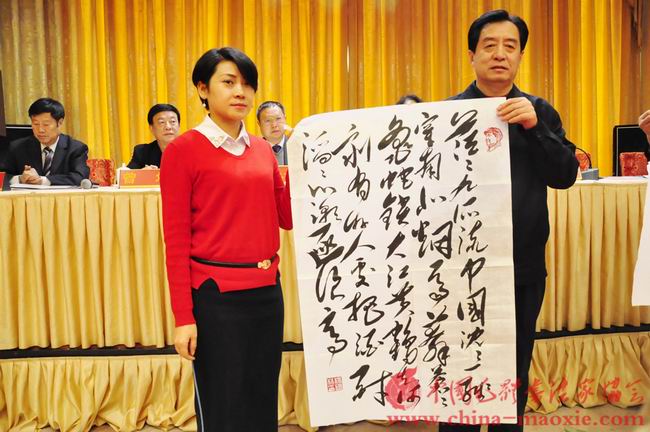 茫々九派流中國沈々一線
穿南北烟雨莽蒼々
龜蛇鎖大江黄鶴知何去
剩有游人處把酒酹
滔々心潮逐浪高
中国毛体书法家协会
www.china-maoxie.com